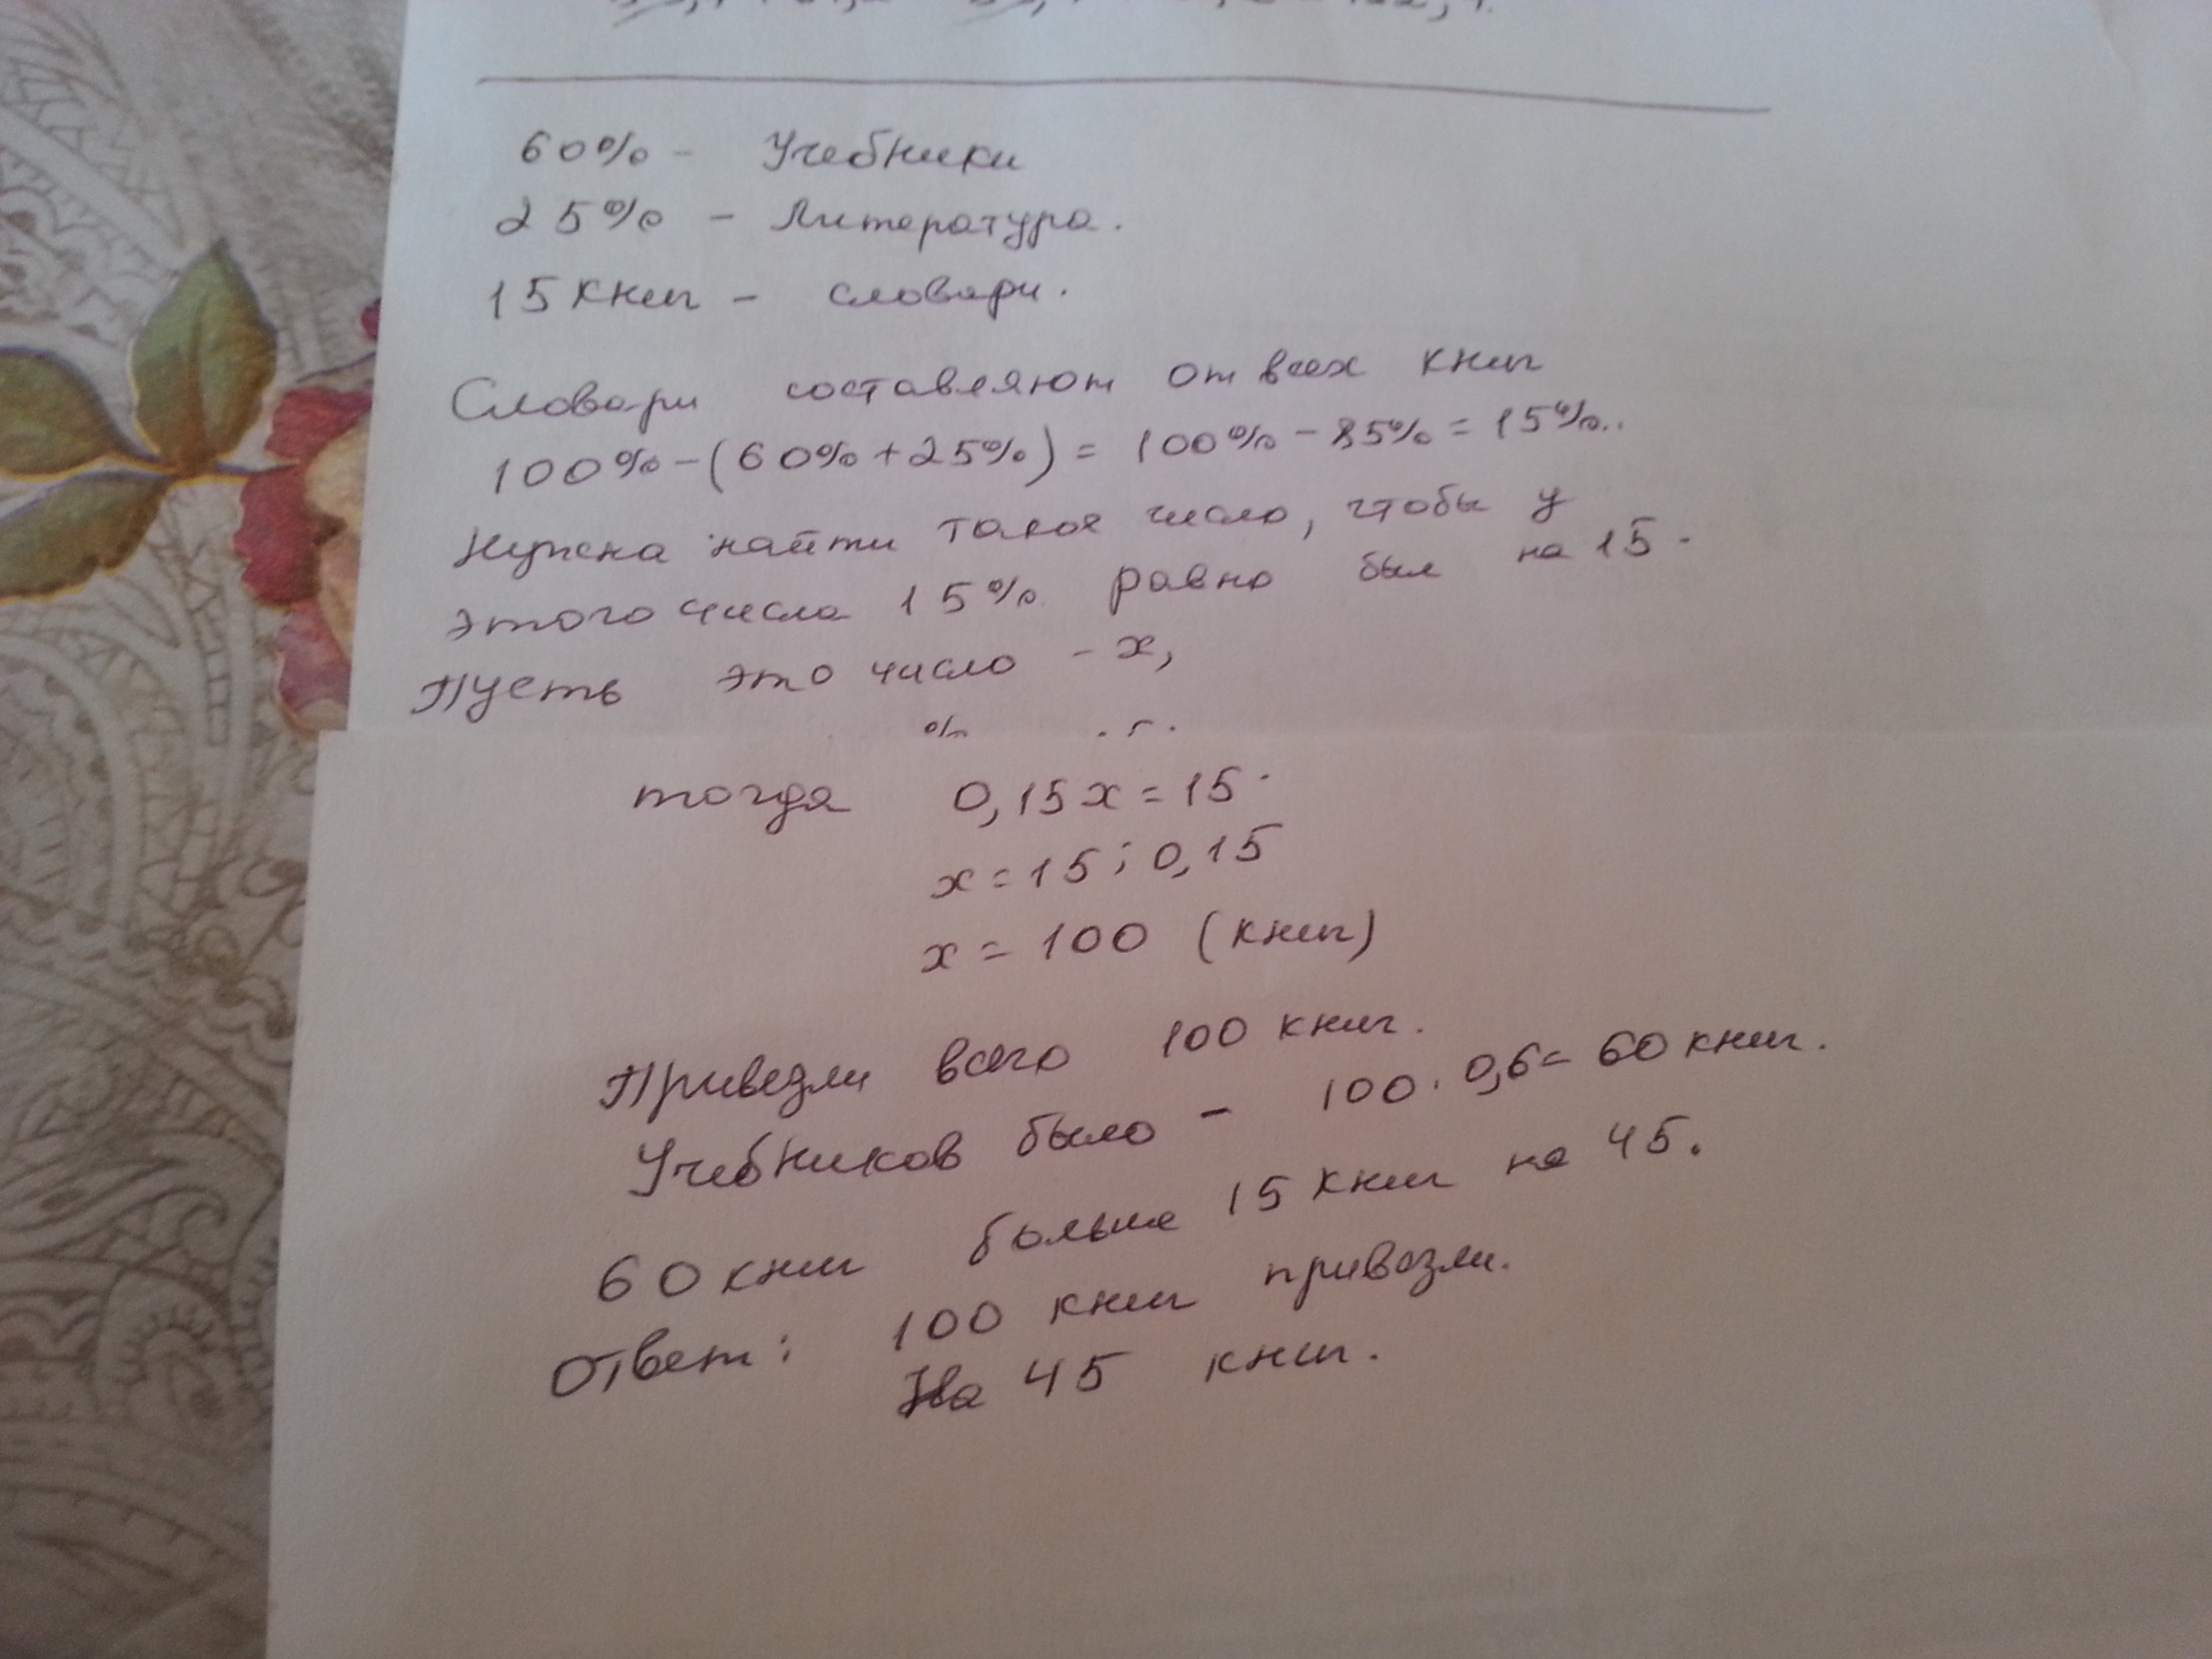 60% - Учебники
25% - Литература.
15 книг - словари.
Словари составляют от всех книг
100% - (60% + 25%) = 100% - 85% = 15%.
Нужна найти такое число, чтобы у
этого числа 15% равно был на 15.
Пусть это число - x,
тогда 0,15x = 15
x = 15 : 0,15
x = 100 (книг)
Привезли всего 100 книг.
Учебников было - 100 · 0,6 = 60 книг.
60 книг больше 15 книг на 45.
Ответ: 100 книг привезли.
На 45 книг.